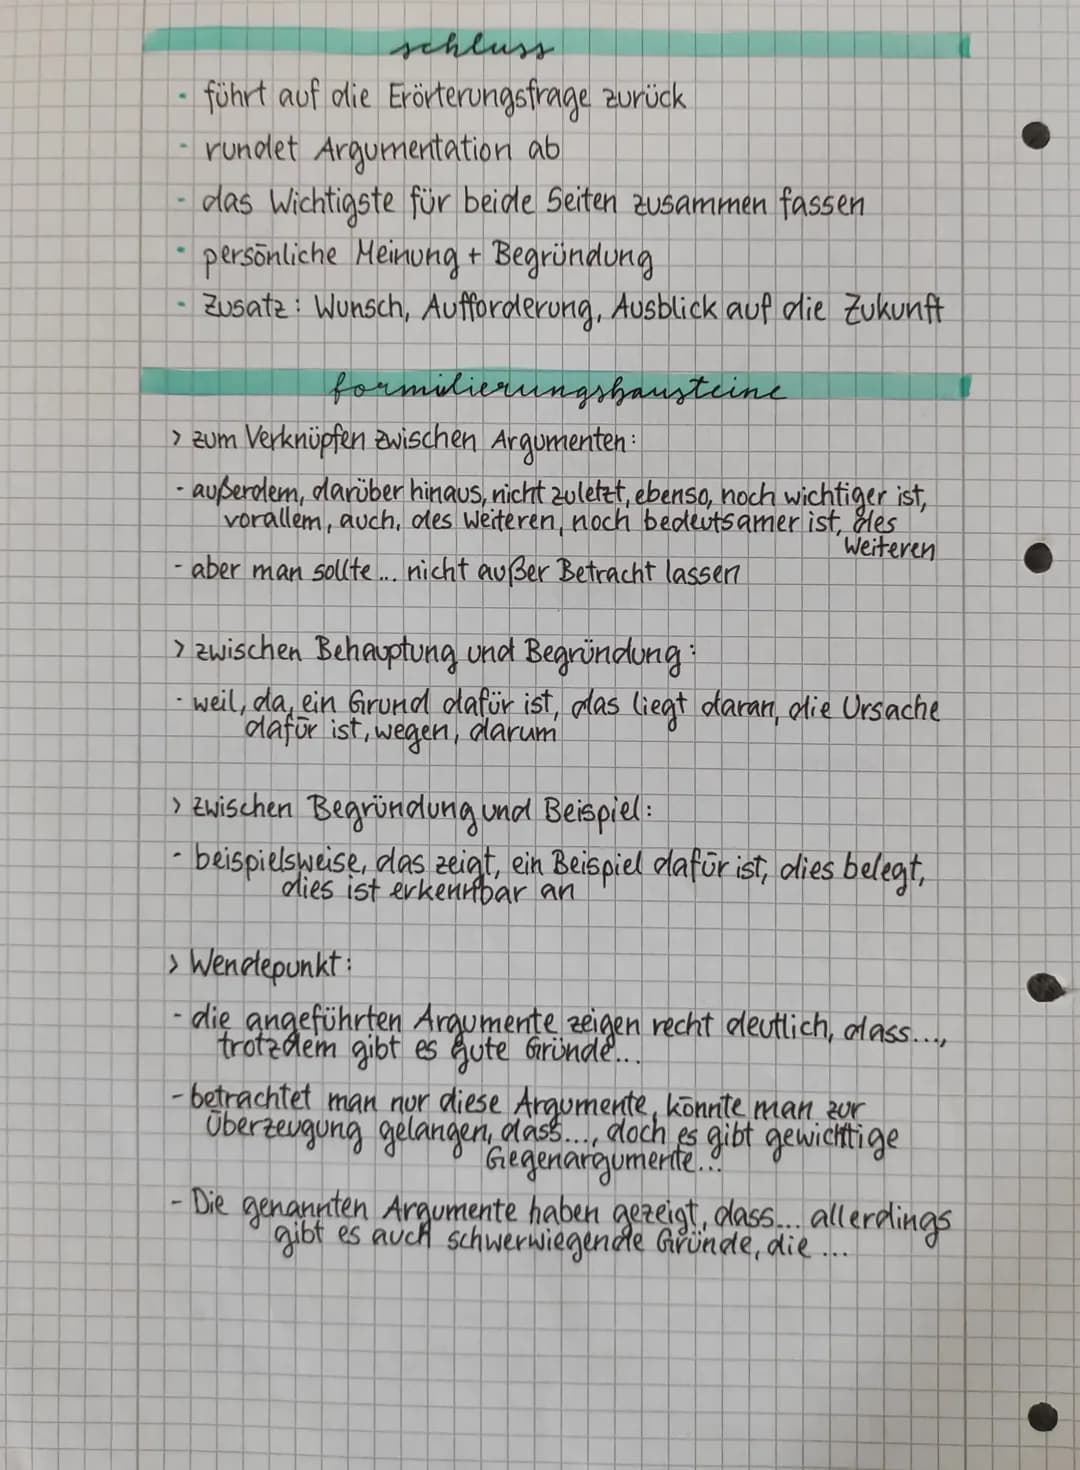 schluss
- führt auf die Erörterungsfrage zurück
- rundet Argumentation ab
- das Wichtigste für beide Seiten zusammen fassen
- persönliche Meinung + Begründung
- Zusatz: Wunsch, Aufforderung, Ausblick auf die Zukunft
formulierungsbausteine
> zum Verknüpfen zwischen Argumenten:
- außerdem, darüber hinaus, nicht zuletzt, ebenso, noch wichtiger ist,
vorallem, auch, des Weiteren, noch bedeutsamer ist, des
Weiteren
- aber man sollte... nicht außer Betracht lassen
> zwischen Behauptung und Begründung:
- weil, da, ein Grund dafür ist, das liegt daran, die Ursache
dafür ist, wegen, darum
> zwischen Begründung und Beispiel:
- beispielsweise, das zeigt, ein Beispiel dafür ist, dies belegt,
dies ist erkennbar an
> Wendepunkt:
- die angeführten Argumente zeigen recht deutlich, dass...,
trotzdem gibt es gute Gründe...
- betrachtet man nur diese Argumente, könnte man zur
Überzeugung gelangen, dass..., doch es gibt gewichtige
Gegenargumente...
- Die genannten Argumente haben gezeigt, dass... allerdings
gibt es auch schwerwiegende Gründe, die ...